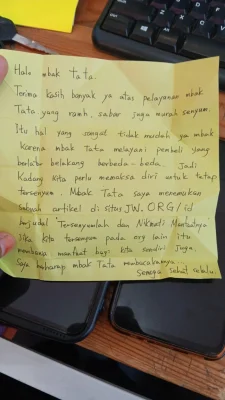 Halo mbak Tata.
Terima kasih banyak ya atas pelayanan mbak
Tata yang ramh, sabar juga murah senyum.
Itu hal yang sangat tidak mudah ya mbak
karena mbak Tata melayani pembeli yang
berlatar belakang berbeda-beda. Jadi
Kadang kita perlu memaksa diri untuk tetap
tersenyum. Mbak Tata saya menemukan
sebuah artikel di situs JW.ORG/id
berjudul "Tersenyumlah dan Nikmati Manfaatnya"
Jika kita tersenyum pada org lain itu
membawa manfaat bagi kita sendiri juga.
Saya berharap mbak Tata membacakannya
Semoga sehat selalu.